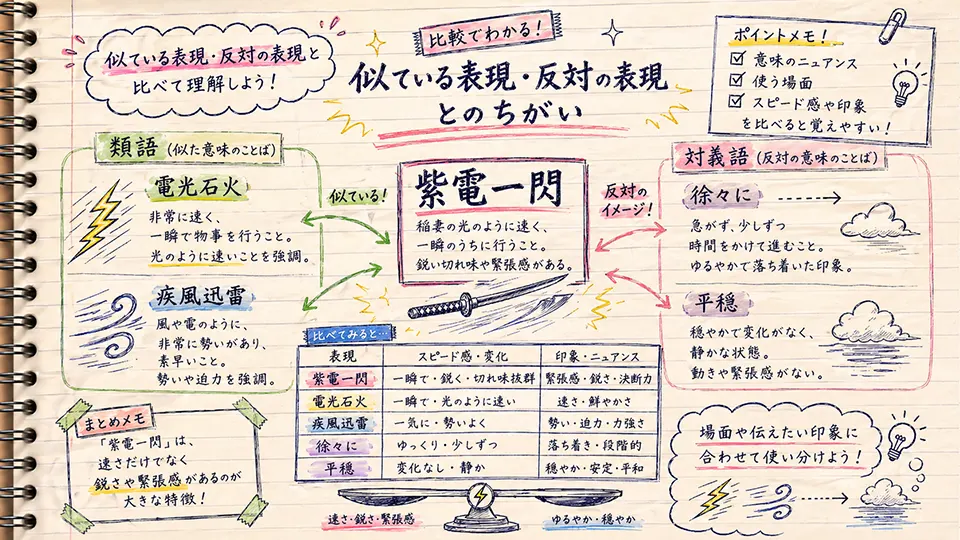 似ている表現・反対の表現と
比べて理解しよう！
比較でわかる！
似ている表現・反対の表現
とのちがい
ポイントメモ！
意味のニュアンス
使う場面
スピード感や印象
を比べると覚えやすい！
類語（似た意味のことば）
電光石火
非常に速く、
一瞬で物事を行うこと。
光のように速いことを強調。
疾風迅雷
風や電のように、
非常に勢いがあり、
素早いこと。
勢いや迫力を強調。
似ている！
紫電一閃
稲妻の光のように速く、
一瞬のうちに行うこと。
鋭い切れ味や緊張感がある。
反対の
イメージ！
対義語（反対の意味のことば）
徐々に
急がず、少しずつ
時間をかけて進むこと。
ゆるやかで落ち着いた印象。
平穏
穏やかで変化がなく、
静かな状態。
動きや緊張感がない。
比べてみると…
表現 スピード感・変化 印象・ニュアンス
紫電一閃 一瞬で・鋭く・切れ味抜群 緊張感・鋭さ・決断力
電光石火 一瞬で・光のように速い 速さ・鮮やかさ
疾風迅雷 一気に・勢いよく 勢い・迫力・力強さ
徐々に ゆっくり・少しずつ 落ち着き・段階的
平穏 変化なし・静か 穏やか・安定・平和
速さ・鋭さ・緊張感
ゆるやか・穏やか
まとめメモ
「紫電一閃」は、
速さだけでなく
鋭さや緊張感があるのが
大きな特徴！
場面や伝えたい印象に
合わせて使い分けよう！